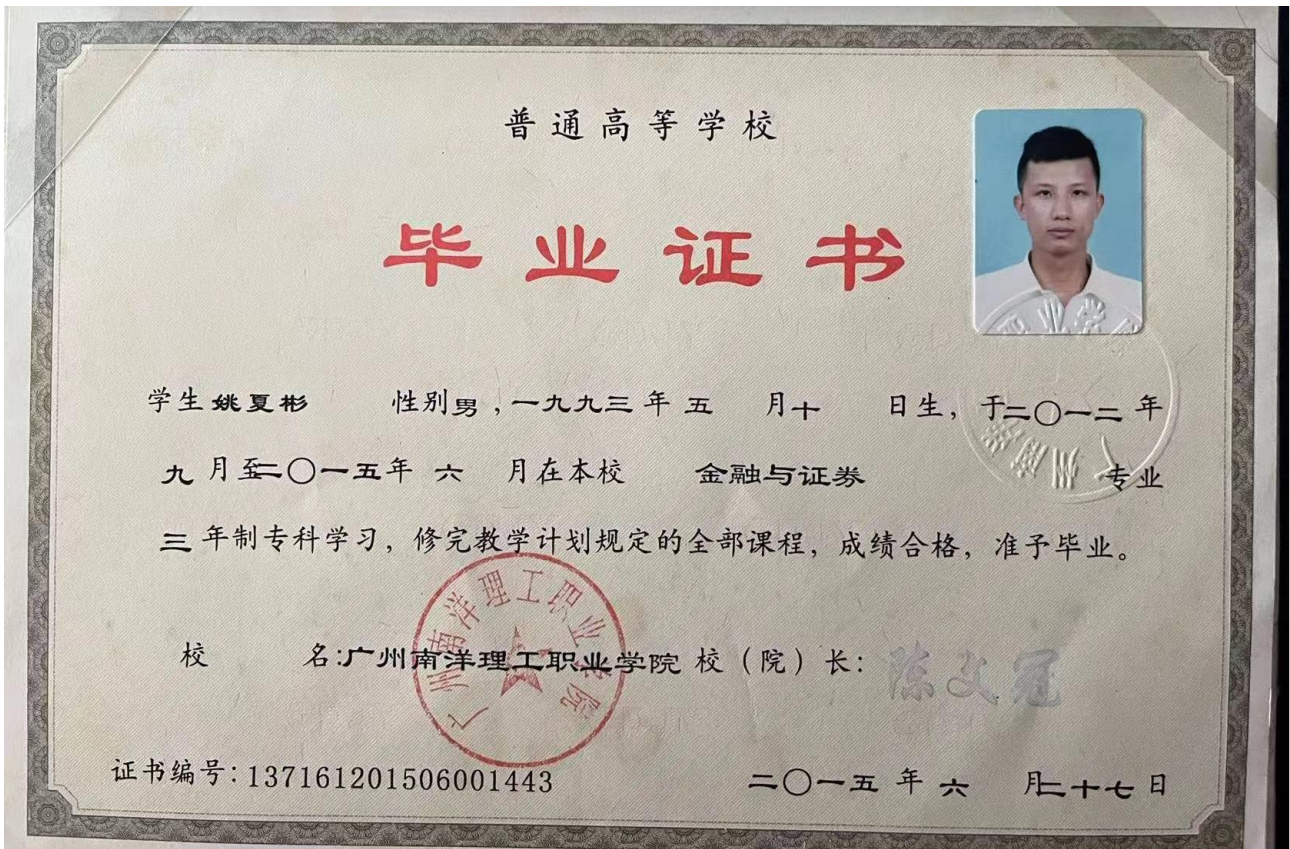 普通高等学校
毕业证书
学生姚夏彬 性别男,一九九三年五月十日生,于二〇一二年
九月至二〇一五年六月在本校 金融与证券 专业
三年制专科学习,修完教学计划规定的全部课程,成绩合格,准予毕业。
校 名:广州南洋理工职业学院 校(院)长: 陈文冠
广州南洋理工职业学院
证书编号:137161201506001443 二〇一五年六月二十七日